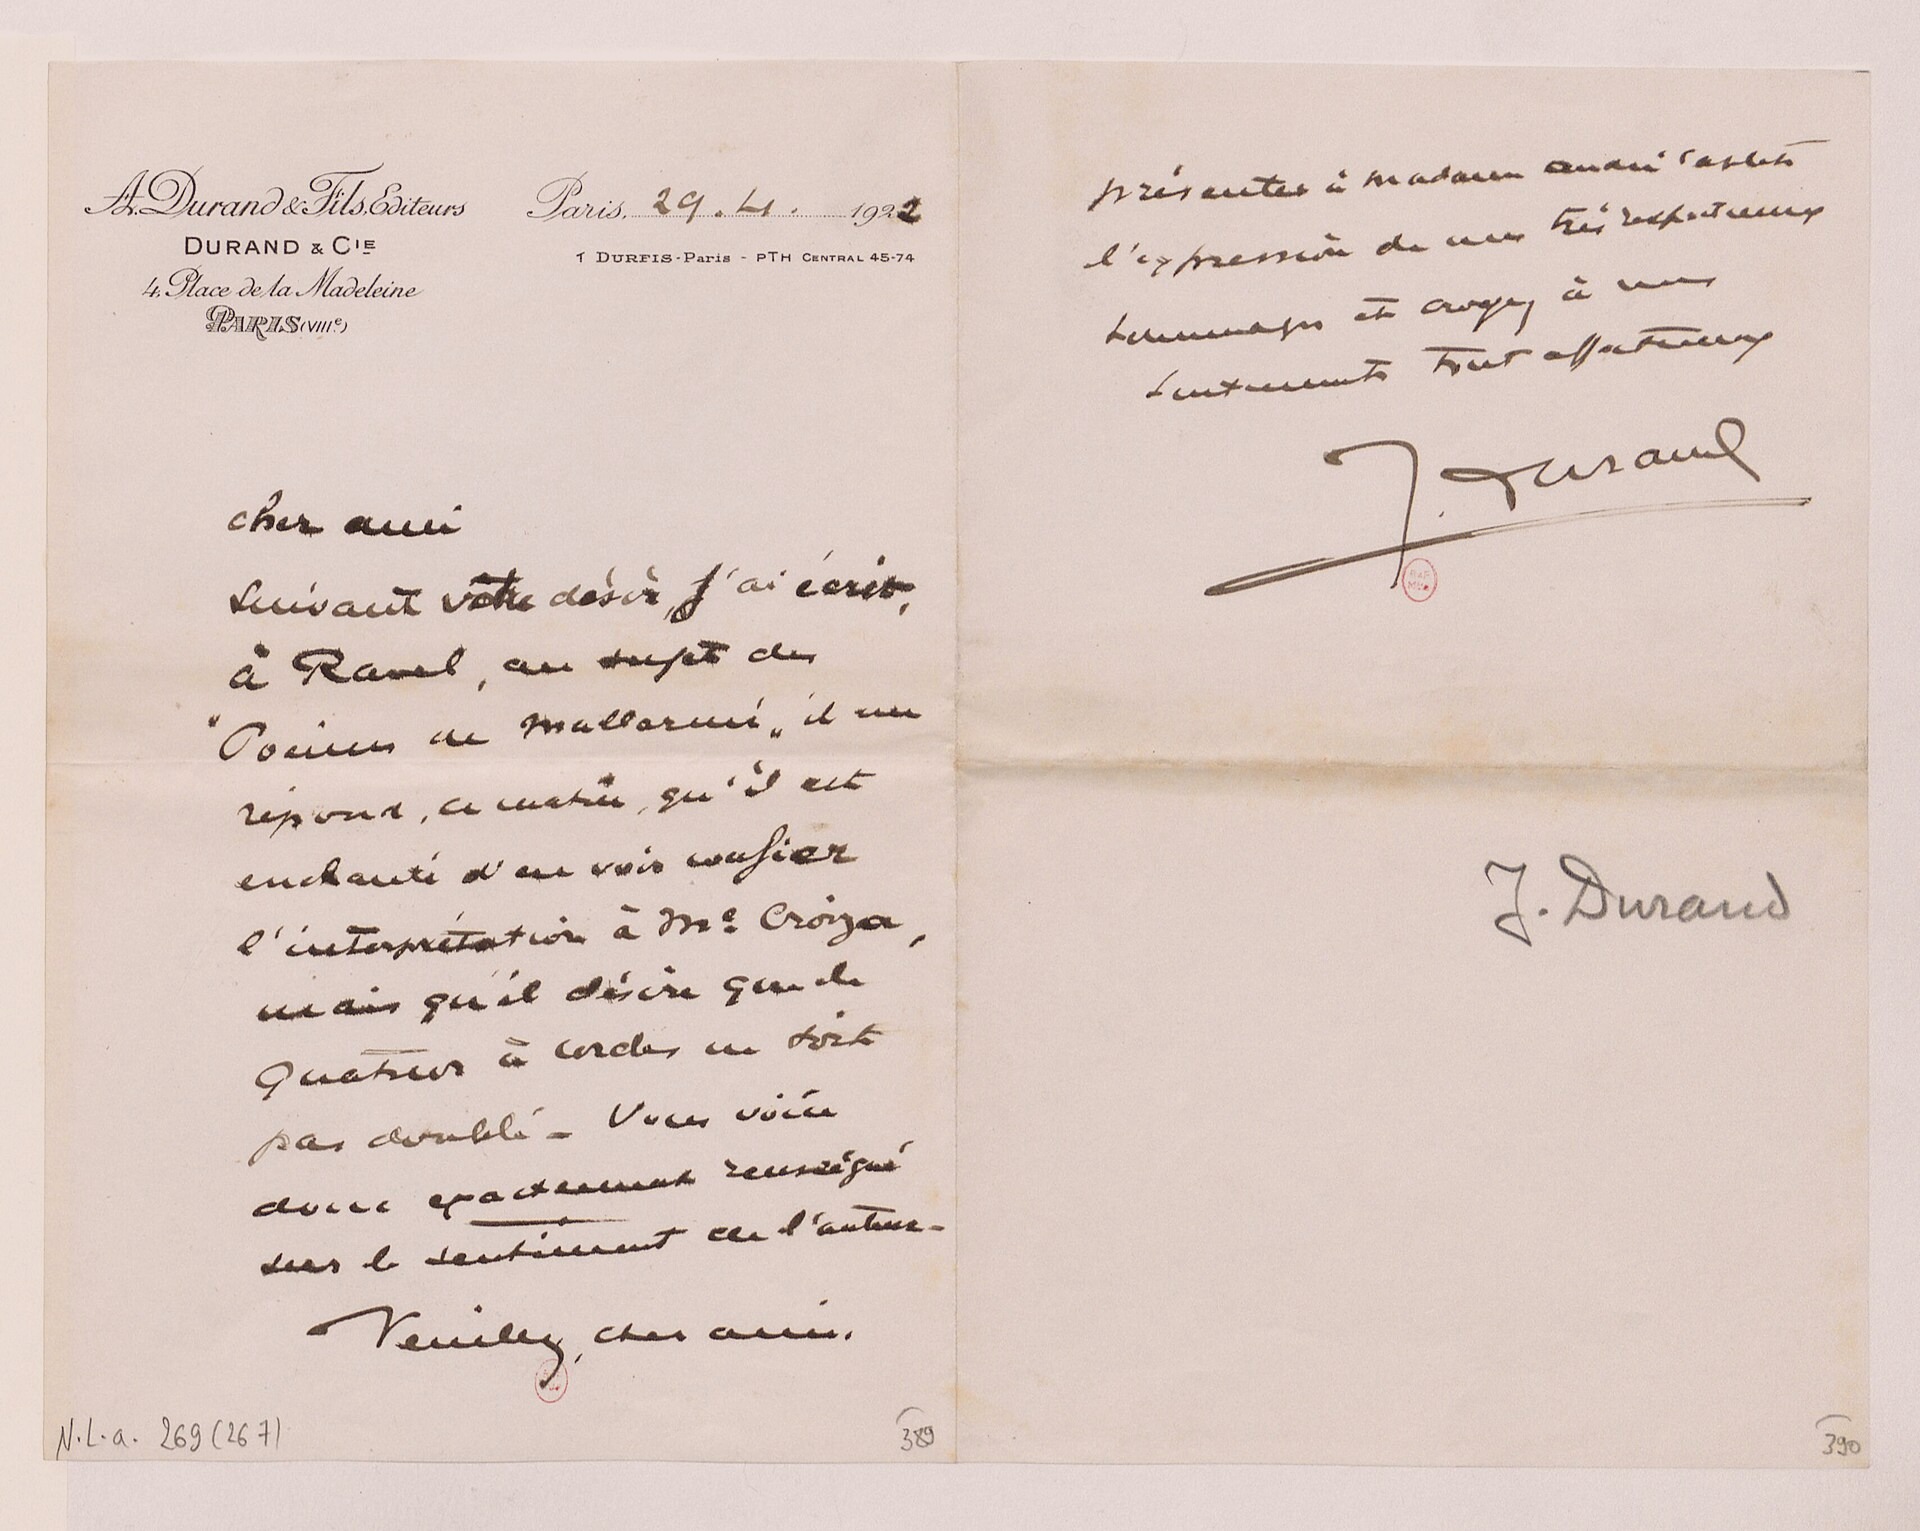 A. Durand & Fils, Editeurs
DURAND & CIE
4, Place de la Madeleine
PARIS (VIIIe)
Paris, 29.4. 1922
DURFIS-Paris - PTH CENTRAL 45-74
cher ami
suivant votre désir, j'ai écrit,
à Ravel, au sujet des
"Poèmes de Mallarmé" il me
répond, ce matin, qu'il est
enchanté d'en voir confier
l'interprétation à Me Croiza,
mais qu'il désire que le
Quatuor à cordes ne soit
pas doublé - Vous voici
donc exactement renseigné
sur le sentiment de l'auteur -
Veuillez, cher ami,
N.L.a. 269 (267)
389
présenter à madame andré Caplet
l'expression de mes très respectueux
hommages et croyez à mes
sentiments tout affectueux
J. Durand
J. Durand
390